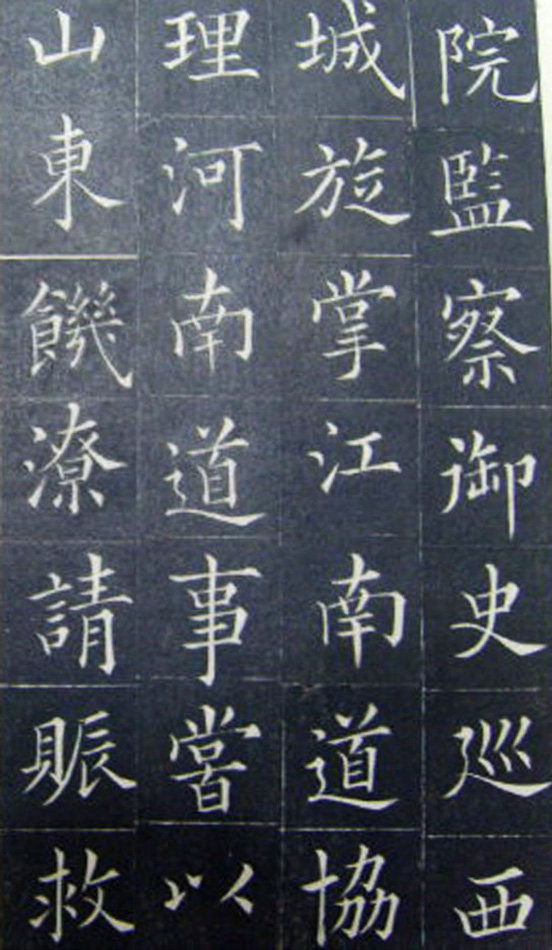 院監察御史巡西
城旋掌江南道協
理河南道事嘗以
山東饑潦請賑救